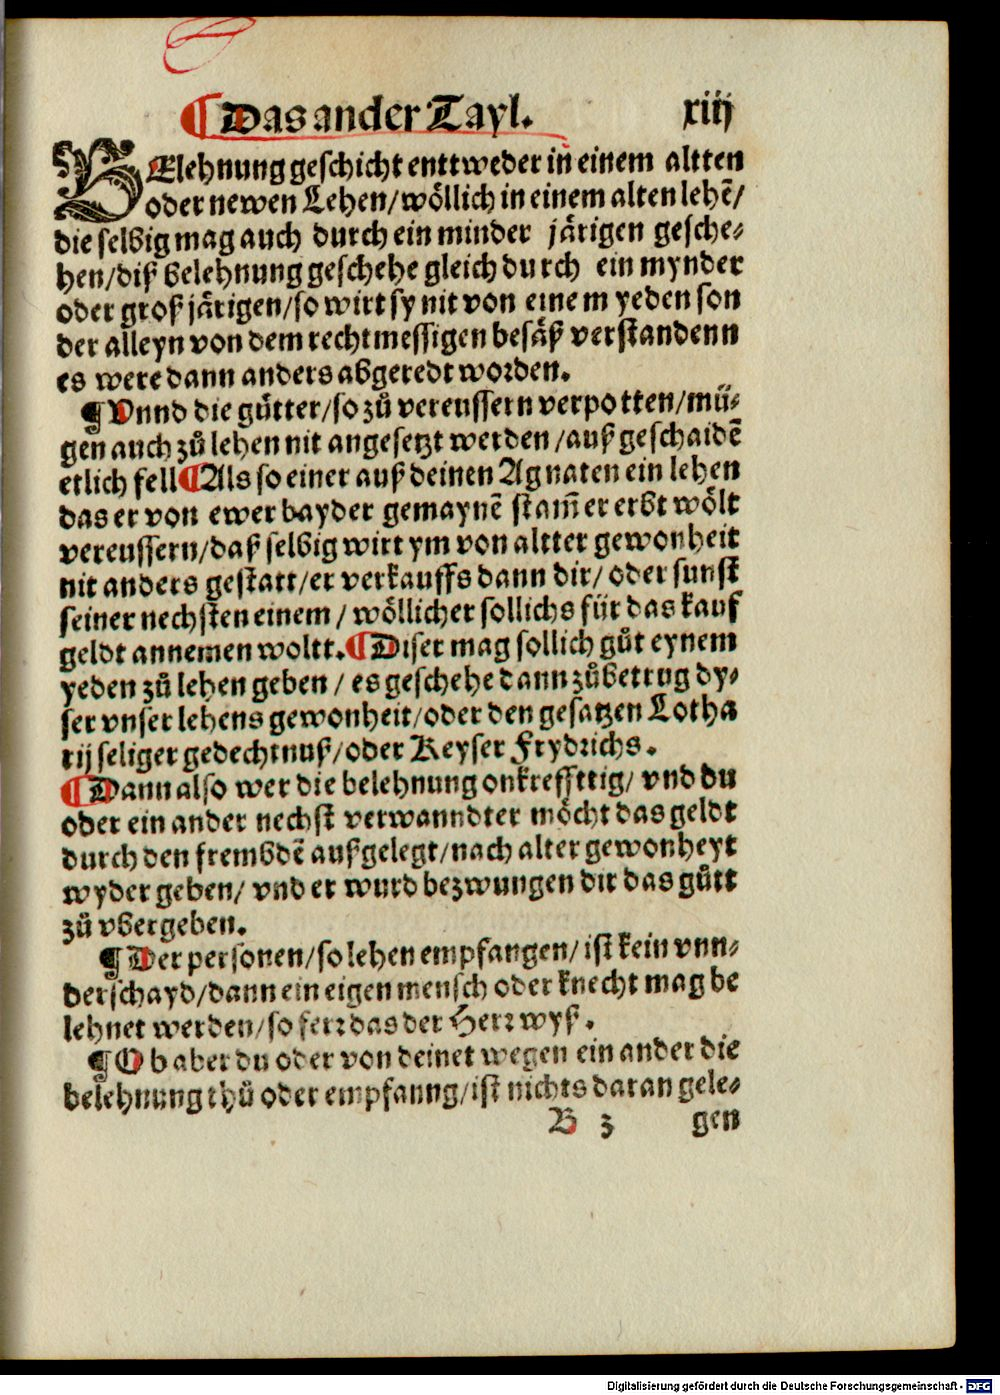 ¶ Das ander Tayl. xiij
BElehnung geschicht enttweder in einem altten
oder newen Lehen/wöllich in einem alten lehē/
die selbig mag auch durch ein minder järigen gesche⸗
hen/diß belehnung geschehe gleich durch ein mynder
oder groß järigen/so wirt sy nit von einem yeden son
der alleyn von dem rechtmessigen besäß verstandenn
es were dann anders abgeredt worden.
¶ Vnnd die gůtter/so zů vereussern verpotten/mü⸗
gen auch zů lehen nit angesetzt werden/auß geschaidē
etlich fell ¶ Als so einer auß deinen Agnaten ein lehen
das er von ewer bayder gemaynē stam̄ er erbt wölt
vereussern/daß selbig wirt ym von altter gewonheit
nit anders gestatt/er verkauffs dann dir/ oder sunst
seiner nechsten einem / wöllicher sollichs für das kauf
geldt annemen woltt. ¶ Diser mag sollich gůt eynem
yeden zů lehen geben / es geschehe dann zů betrug dy⸗
ser vnser lehens gewonheit/oder den gesatzen Lotha
rij seliger gedechtnuß/oder Keyser Frydrichs.
¶ Dann also wer die belehnung onkreffttig/ vnd du
oder ein ander nechst verwanndter möcht das geldt
durch den frembdē außgelegt/nach alter gewonheyt
wyder geben/ vnd er wurd bezwungen dir das gůtt
zů vbergeben.
¶ Der personen/so lehen empfangen/ ist kein vnn⸗
derschayd/dann ein eigen mensch oder knecht mag be
lehnet werden/so ferr das der Herr wyß.
¶ Ob aber du oder von deinet wegen ein ander die
belehnung thů oder empfanng/ist nichts daran gele⸗
B 3 gen
Digitalisierung gefördert durch die Deutsche Forschungsgemeinschaft - DFG